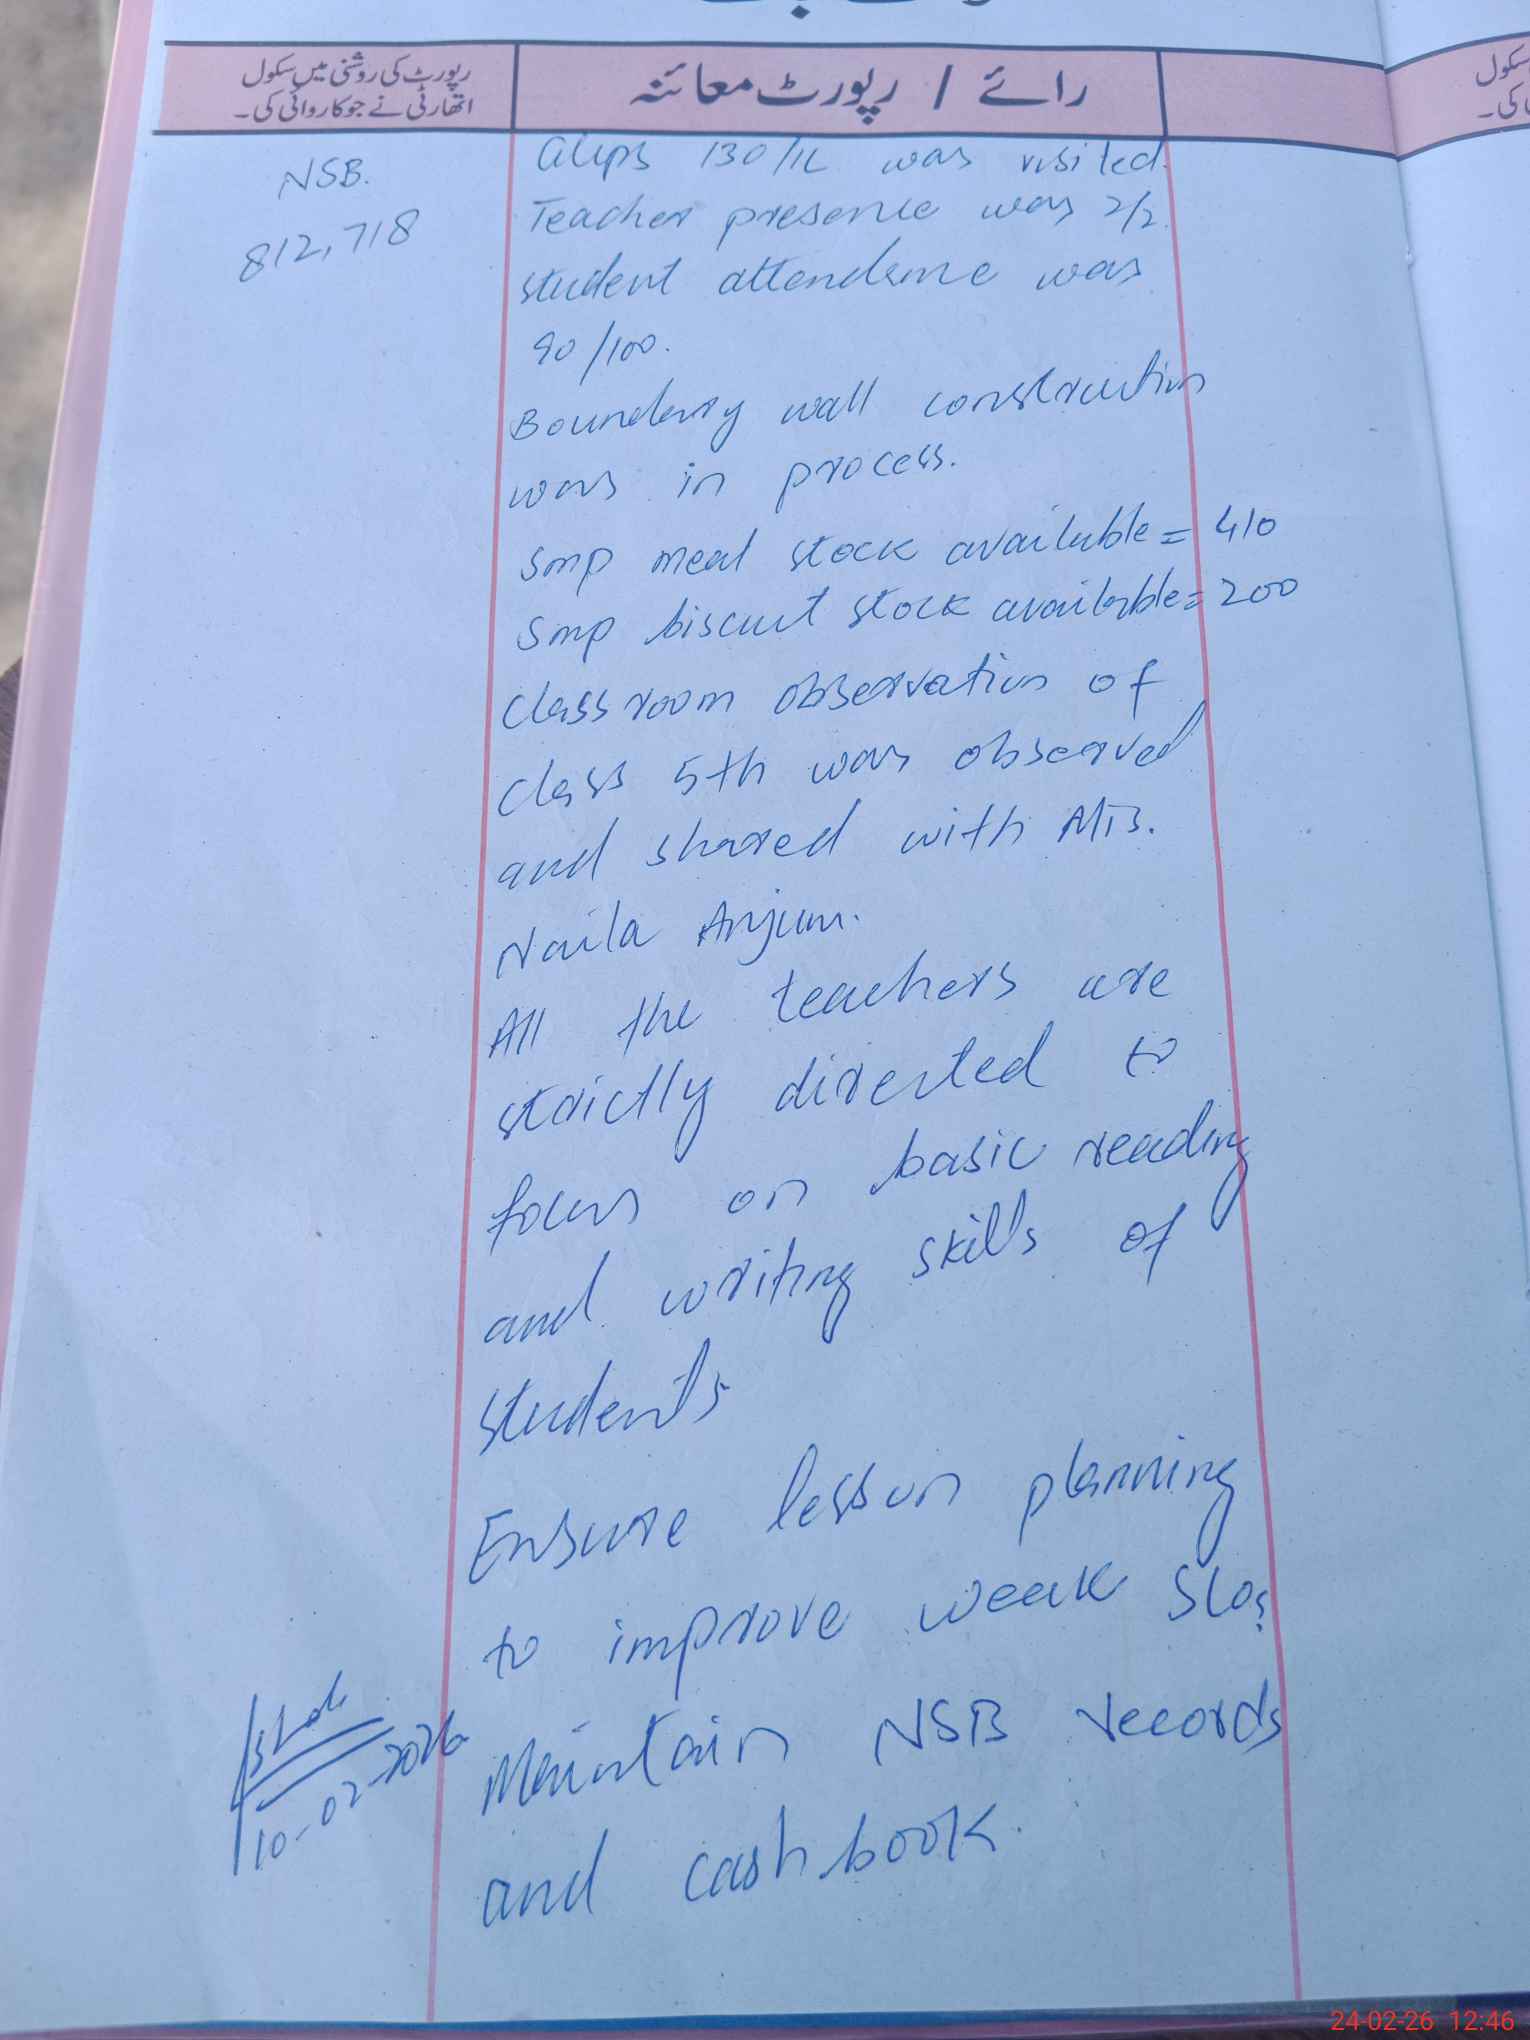 رپورٹ کی روشنی میں سکول
اتھارٹی نے جو کاروائی کی۔
رائے / رپورٹ معائنہ
سکول
کی۔
NSB.
812,718
GMPS 130/1L was visited.
Teacher presence was 2/2.
student attendance was
90/100.
Boundary wall construction
was in process.
Smp meal stock available = 410
Smp biscuit stock available = 200
Class room observation of
Class 5th was observed
and shared with Ms.
Naila Anjum.
All the teachers are
strictly directed to
focus on basic reading
and writing skills of
students
Ensure lesson planning
to improve weak SLOs
Maintain NSB records
and cash book.
10-02-2026
24-02-26 12:46